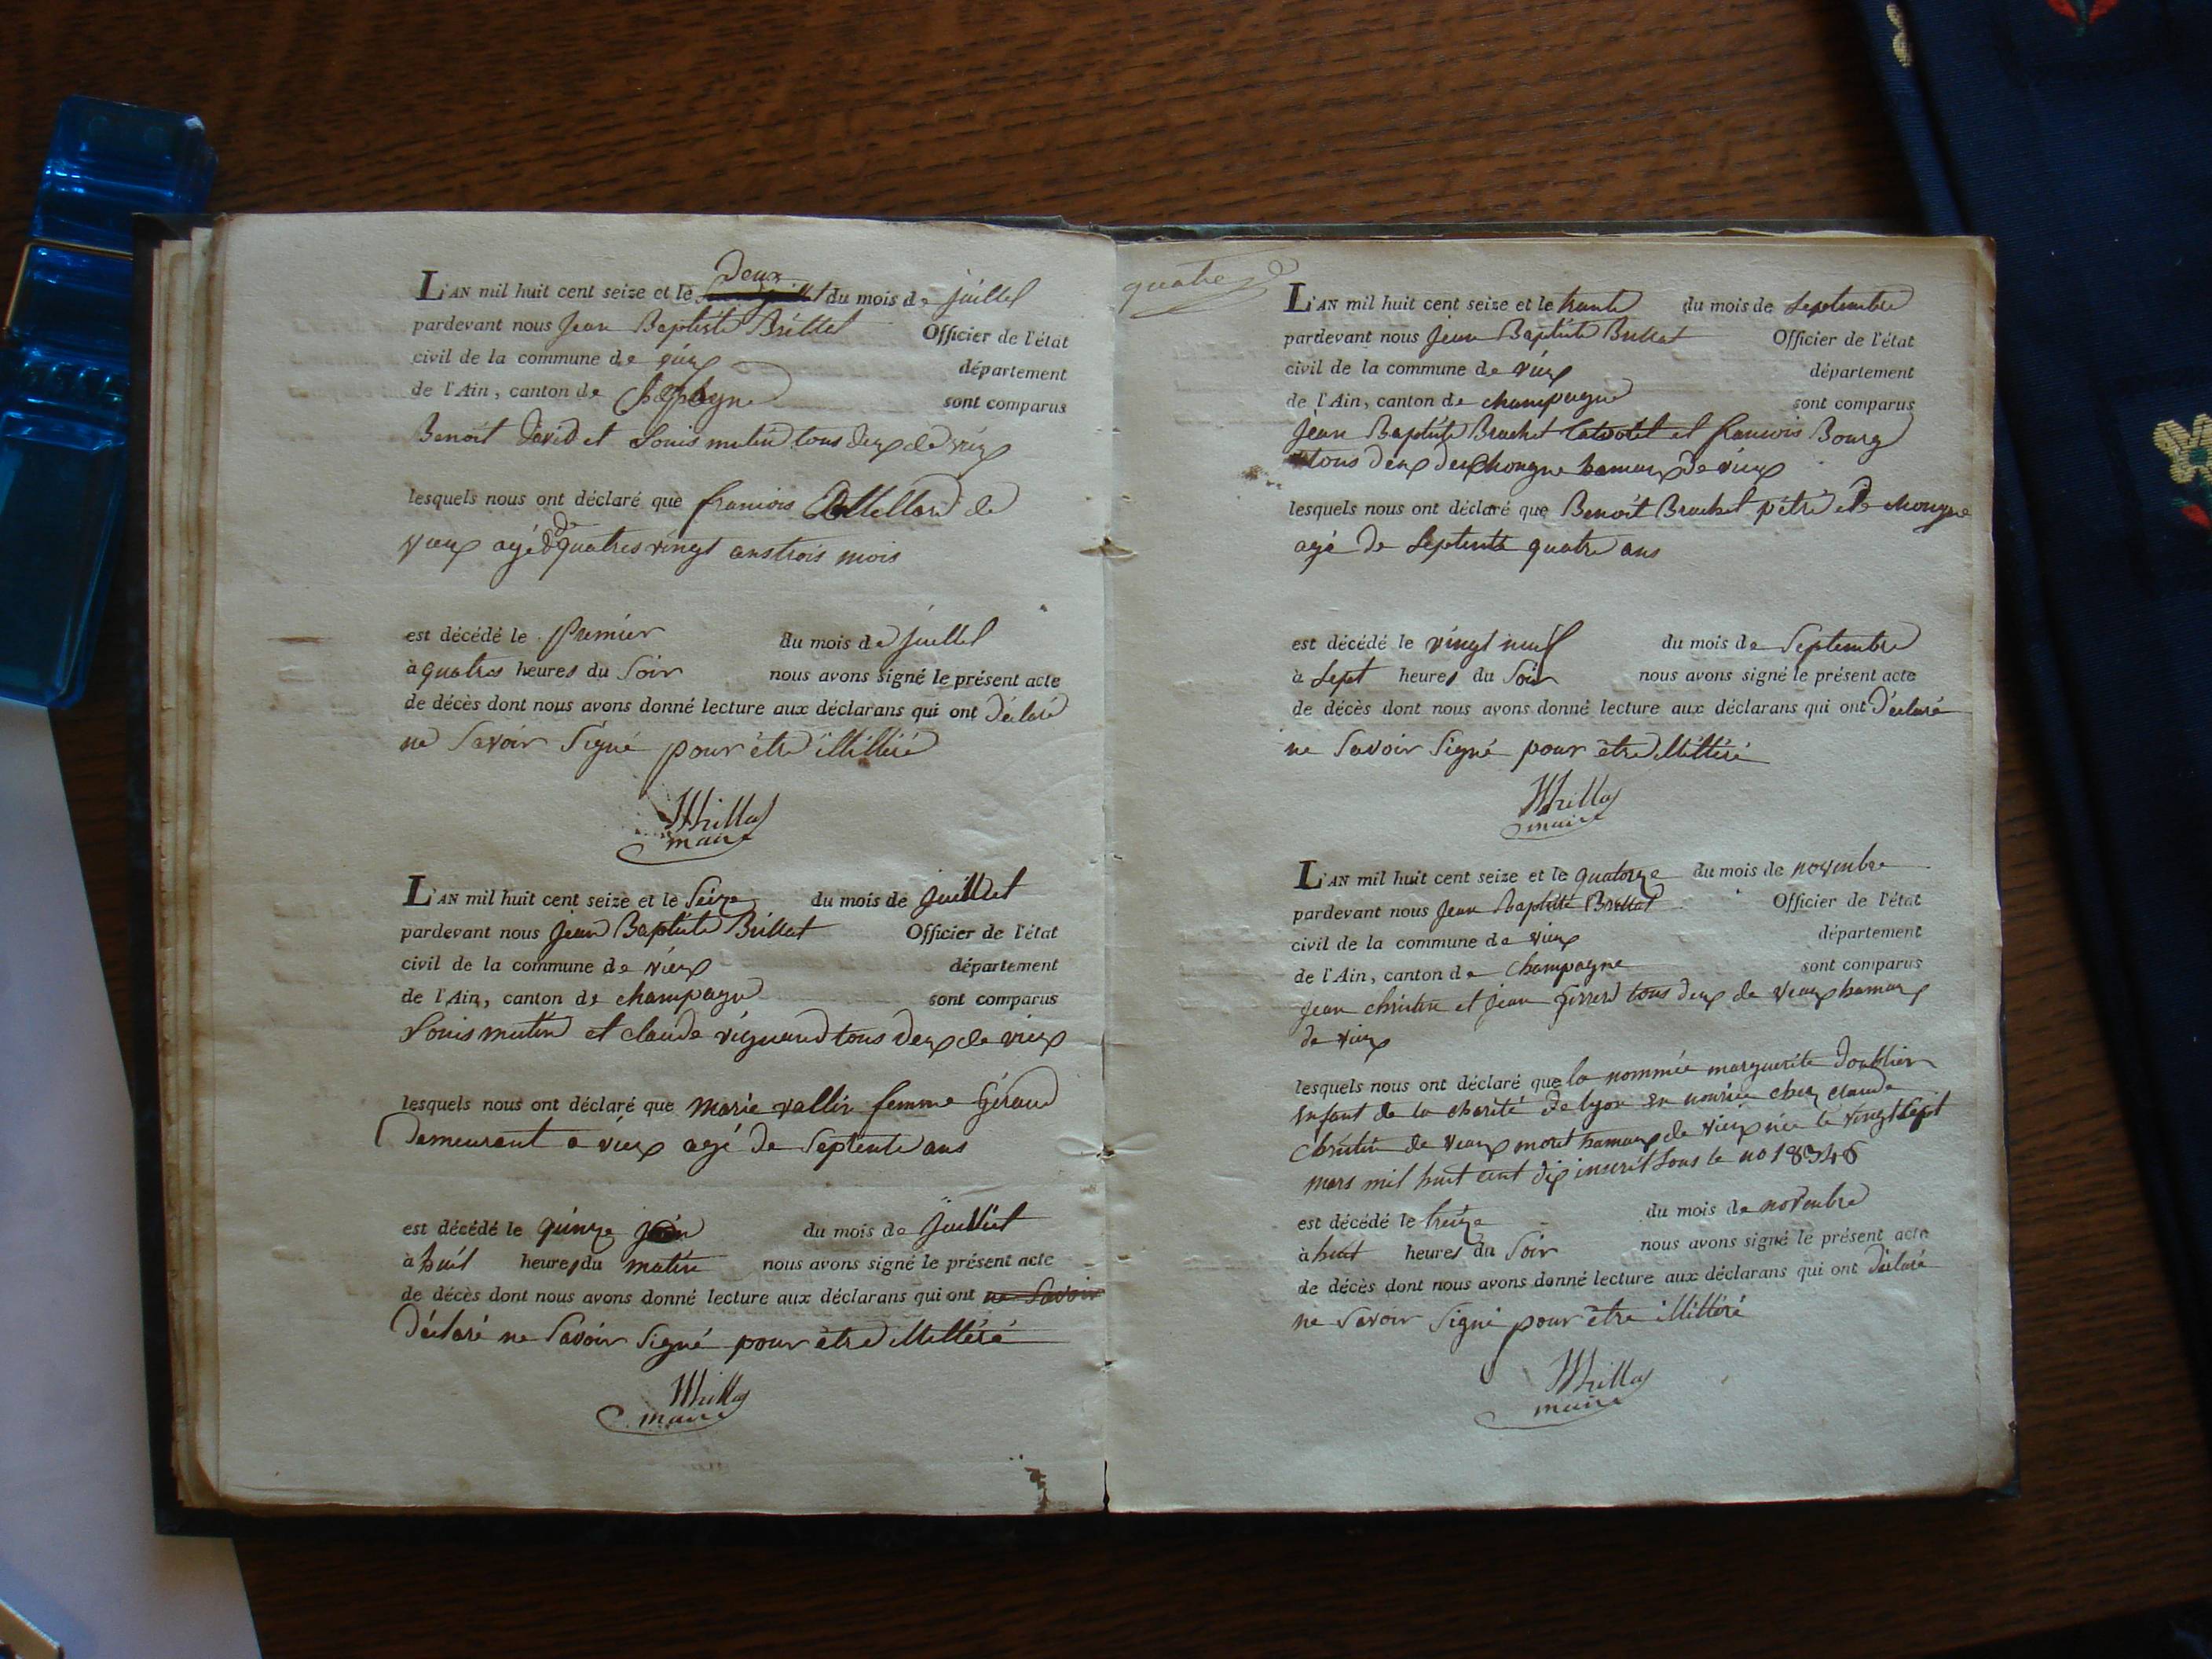 Deux
L'AN mil huit cent seize et le du mois de juillet
pardevant nous Jean Baptiste Brillat Officier de l'état
civil de la commune de vieux département
de l'Ain, canton de sont comparus
Benoit David et Louis mutin tous deux de vieux
lesquels nous ont déclaré que francois de
vieux agé de quatres vingt ans trois mois
est décédé le premier du mois de juillet
à quatres heures du Soir nous avons signé le présent acte
de décès dont nous avons donné lecture aux déclarans qui ont déclaré
ne Savoir Signé pour être illittéré
maire
L'AN mil huit cent seize et le Seize du mois de juillet
pardevant nous Jean Baptiste Brillat Officier de l'état
civil de la commune de vieux département
de l'Ain, canton de champagne sont comparus
Louis mutin et claude vignand tous deux de vieux
lesquels nous ont déclaré que marie vallin femme Géraud
Demeurant a vieux agé de Septente ans
est décédé le quinze du mois de juillet
à huit heures du matin nous avons signé le présent acte
de décès dont nous avons donné lecture aux déclarans qui ont ne Savoir
Déclaré ne Savoir Signé pour être illittéré
maire
quatre
L'AN mil huit cent seize et le trante du mois de Septembre
pardevant nous Jean Baptiste Brillat Officier de l'état
civil de la commune de vieux département
de l'Ain, canton de champagne sont comparus
Jean Baptiste Brachet et francois Bourg
tous deux de chongne hamaux de vieux
lesquels nous ont déclaré que Benoit Brachet de chongne
agé de Septente quatre ans
est décédé le vingt neuf du mois de Septembre
à Sept heures du Soir nous avons signé le présent acte
de décès dont nous avons donné lecture aux déclarans qui ont Déclaré
ne Savoir Signé pour être illittéré
maire
L'AN mil huit cent seize et le quatorze du mois de novembre
pardevant nous Jean Baptiste Brillat Officier de l'état
civil de la commune de vieux département
de l'Ain, canton de champagne sont comparus
Jean chrietin et Jean tous deux de hamaux
de vieux
lesquels nous ont déclaré que la nommée marguerite Doublier
enfant de la charité de lyon en nourice chez claude
chrietin de hamaux de vieux née le vingt Sept
mars mil huit cent dix inscrit Sous le no 18346
est décédé le treize du mois de novembre
à huit heures du Soir nous avons signé le présent acte
de décès dont nous avons donné lecture aux déclarans qui ont Déclaré
ne Savoir Signé pour être illittéré
maire